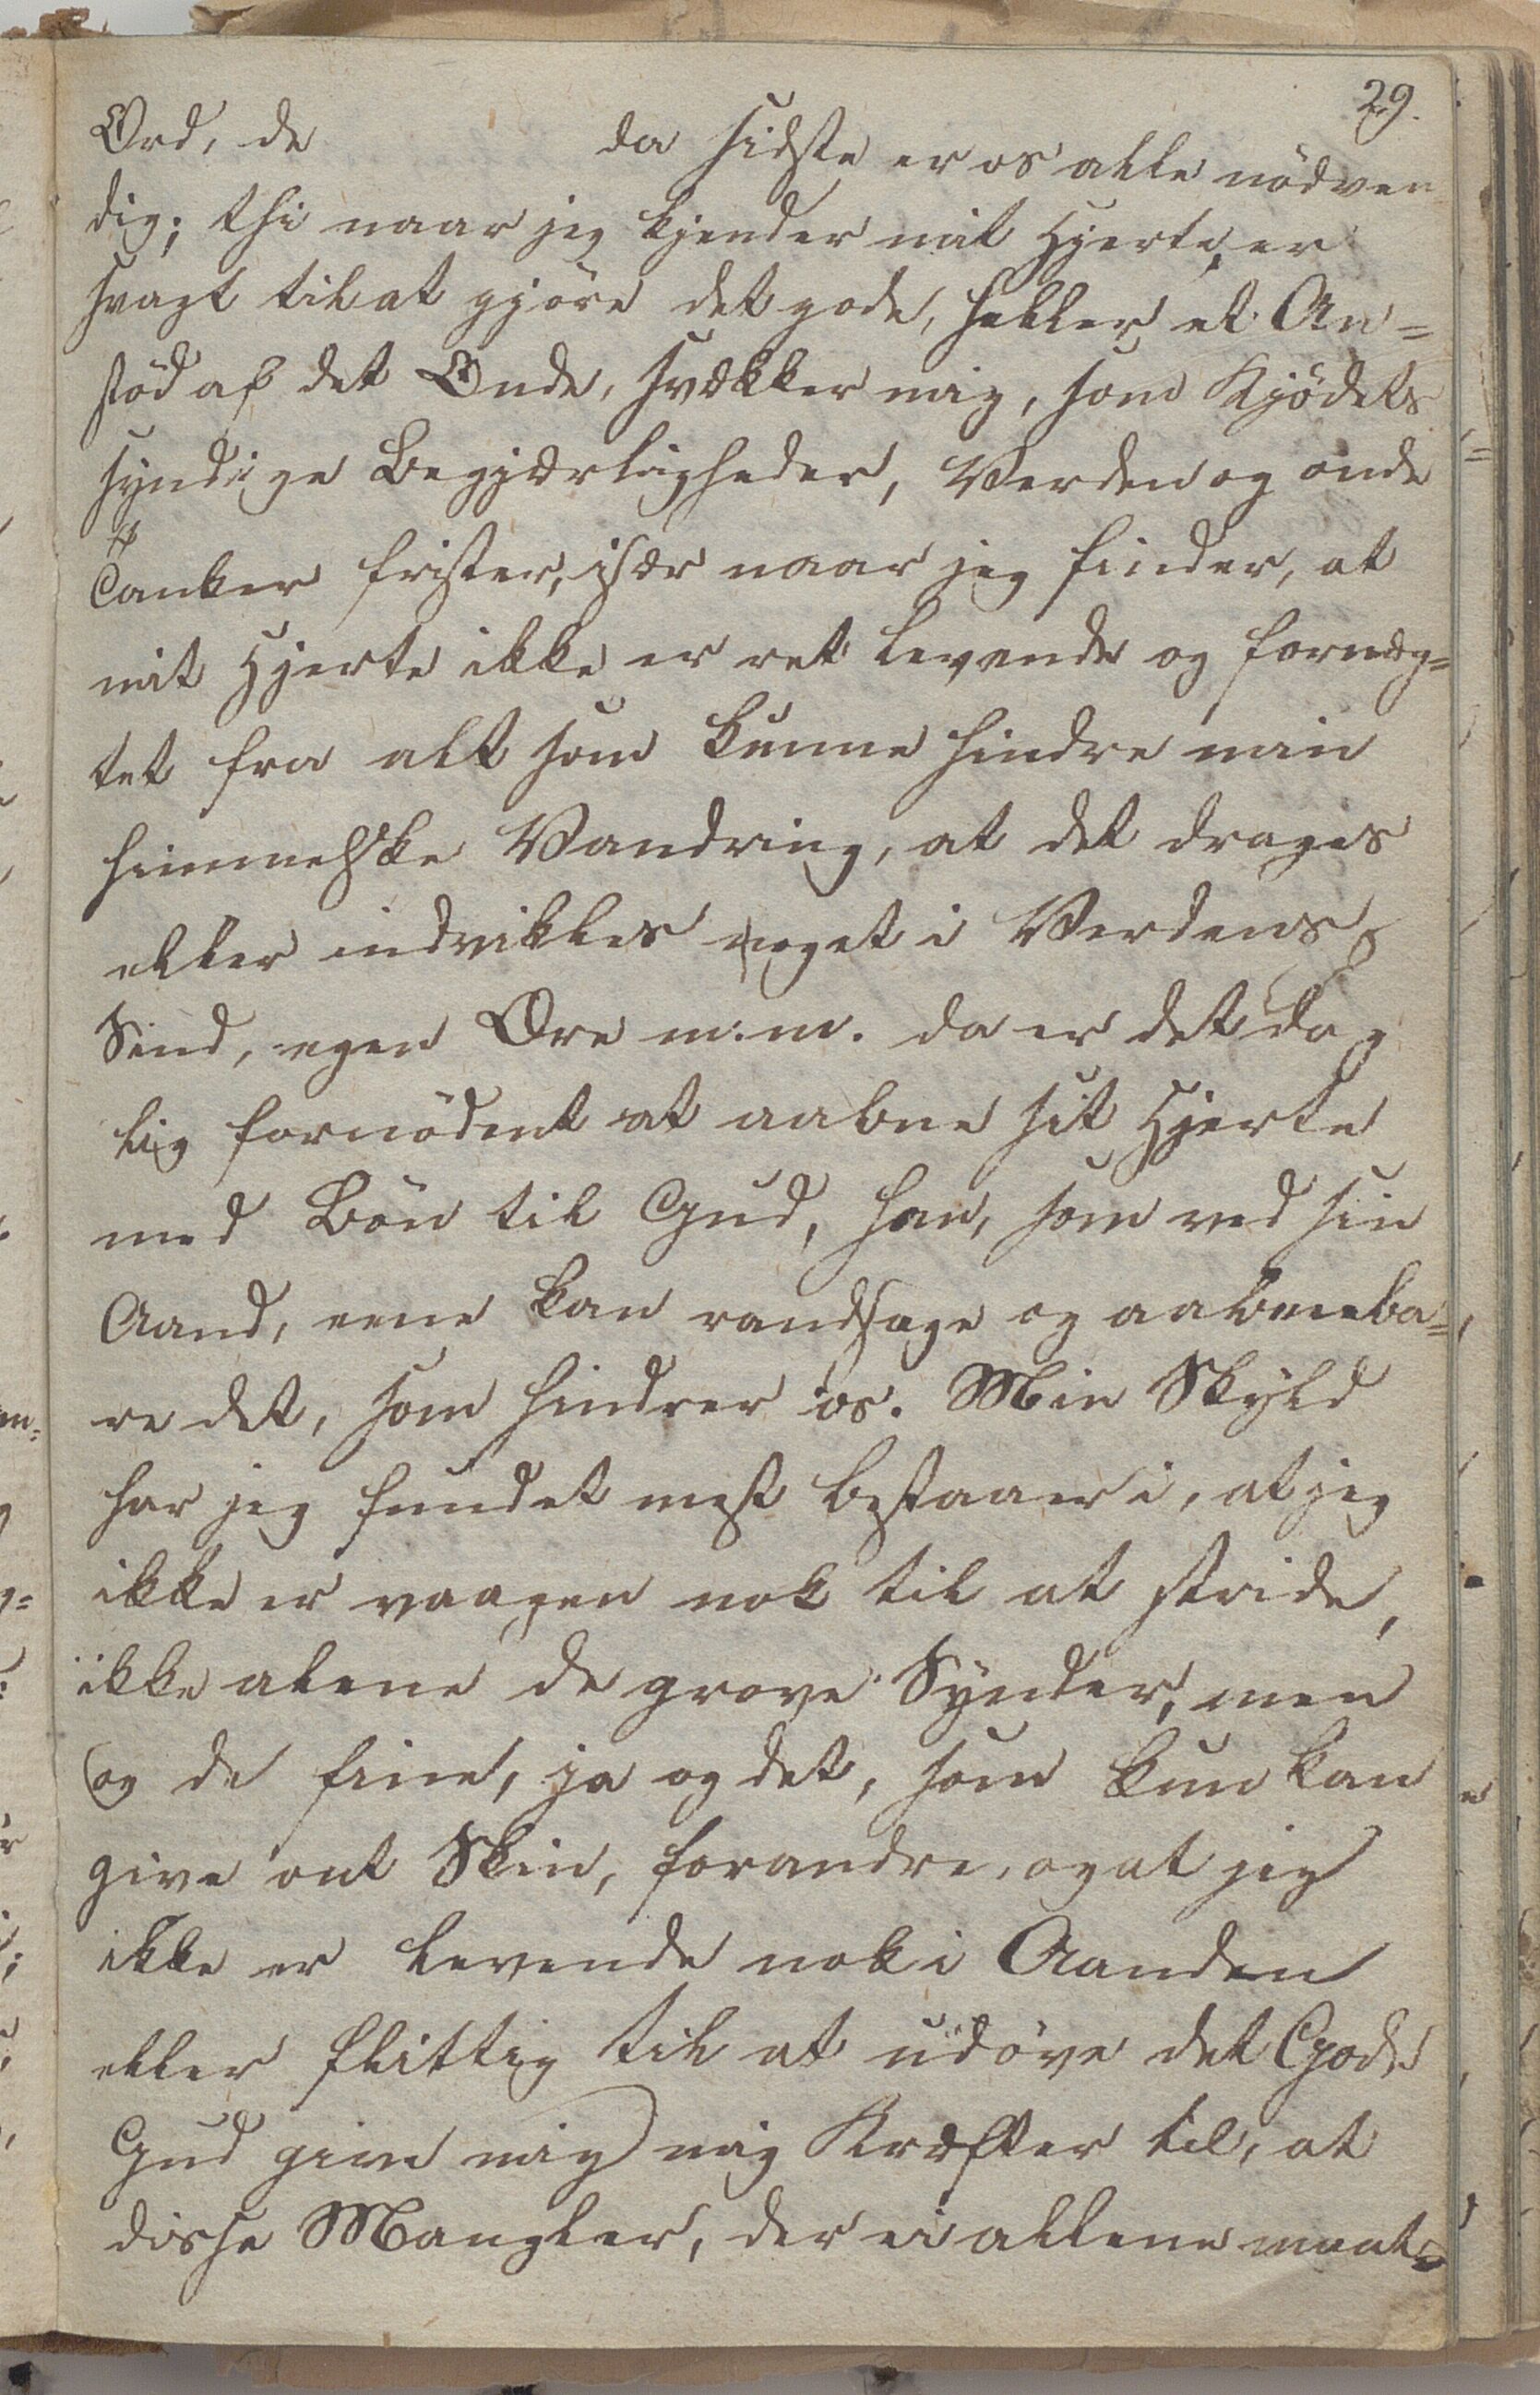 29.
Ord, de da sidste er os alle nödven
dig; thi naar jeg kjender mit Hjerte, er
svagt til at gjöre det gode, heller et An=
stöd af det Onde, svækker mig, som Kjödets
syndige Begjærligheder, Verden og onde
Tanker frister, især naar jeg finder, at
mit Hjerte ikke er ret levende og fornæg=
tet fra alt som kunne hindre min
himmelske Vandring, at det drages
eller indvikles noget i Verdens
Sind, egen Ære m.m. da er det dag
lig fornödent at aabne sit Hjerte
med Bön til Gud, han, som ved sin
Aand, eene kan randsage og aabenba=
re det, som hindrer os. Min Skyld
har jeg fundet mest bestaaer i, at jeg
ikke er vaagen nok til at stride,
ikke alene de grove Synder, men
og de fine, ja og det, som kun kan
give ont Skin, forandre, og at jeg
ikke er levende nok i Aanden
eller flittig til at udöve det Gode
Gud give mig mig Kræfter til, at
disse Mangler, der ei allene maat=